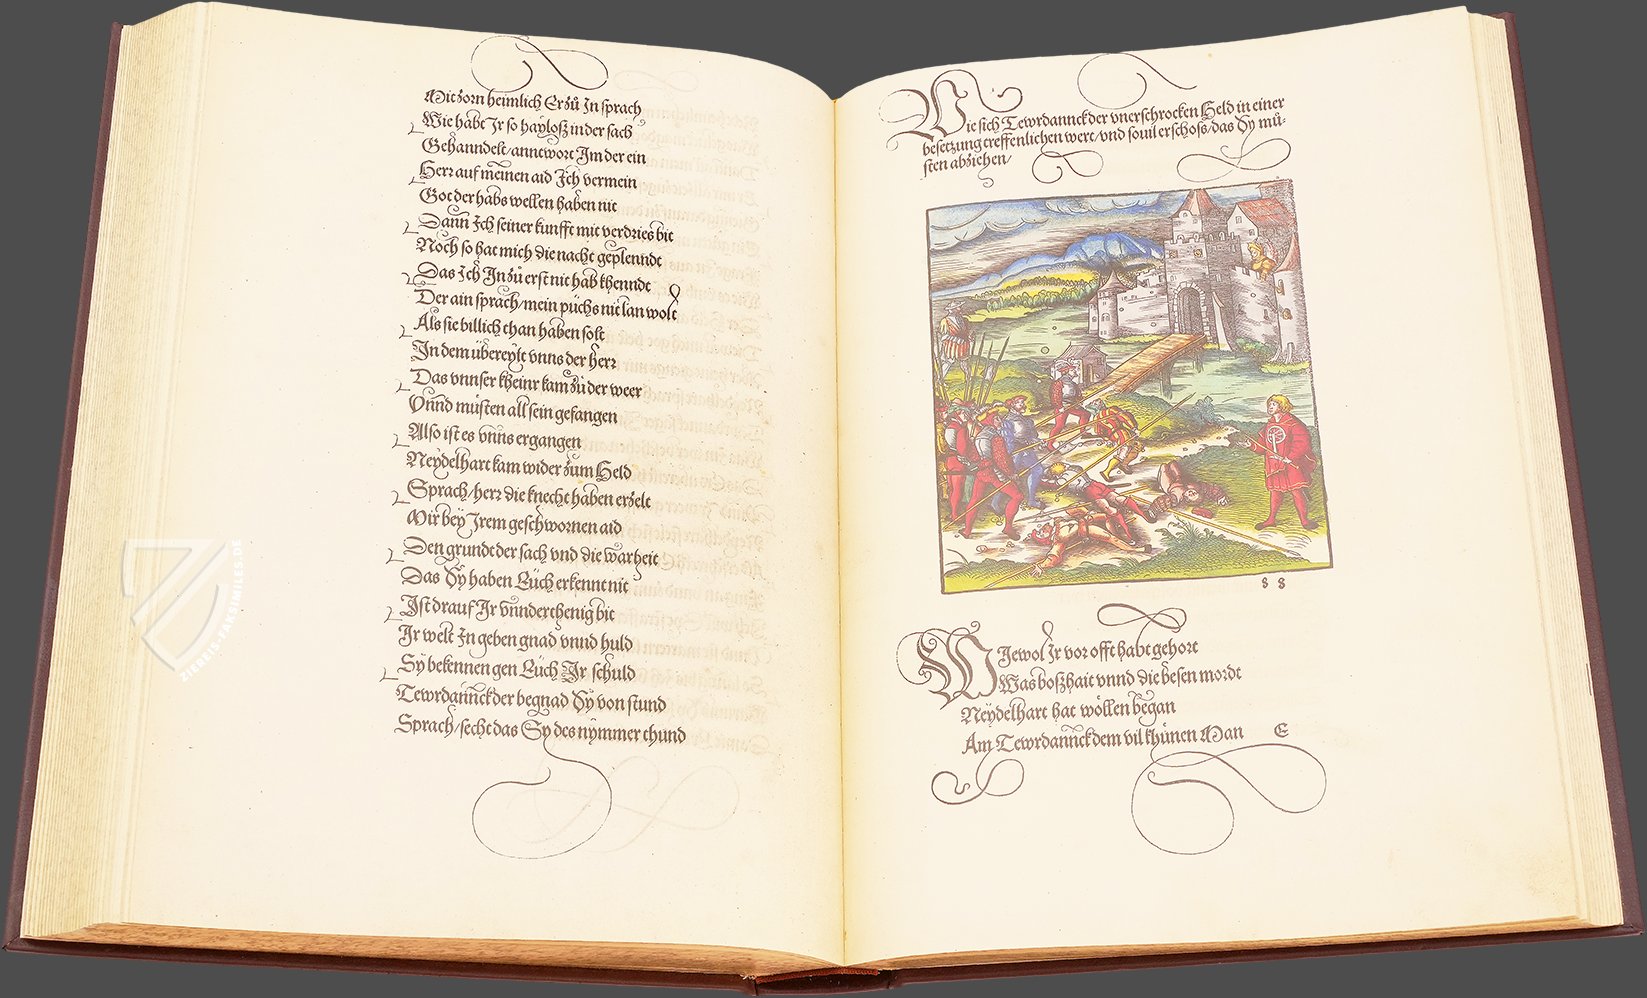 Mit zorn heimlich Er zů In sprach
Wie habt Ir so hayloß in der sach
Gehanndelt/anntwort Im der ein
Herr auf meinen aid Ich vermein
Got der habs wellen haben nit
Dann Ich seiner kunfft mit verdries bit
Noch so hat mich die nacht geplenndt
Das Ich In zů erst nit hab khenndt
Der ain sprach/mein püchs nit lan wolt
Als sie billich than haben solt
In dem übereylt vnns der herr
Das vnnser kheinr kam zů der weer
Vnnd müsten all sein gefangen
Also ist es vnns ergangen
Neydelhart kam wider zum Held
Sprach/herr die knecht haben erzelt
Mir bey Irem geschwornen aid
Den grundt der sach vnd die warheit
Das Sy haben Euch erkennt nit
Ist drauf Ir vnnderthenig bit
Ir welt In geben gnad vnnd huld
Sy bekennen gen Euch Ir schuld
Tewrdannck der begnad Sy von stund
Sprach/secht das Sy des nymmer thund
Wie sich Tewrdannck der vnerschrocken Held in einer
besetzung treffenlichen wert/vnd souil erschoss/das Sy mů-
sten abziehen/
88
WIewol Ir vor offt habt gehort
Was boßhait vnnd die besen mordt
Neydelhart hat wöllen began
Am Tewrdannck dem vil khünen Man E
ZIEREIS-FAKSIMILES.DE